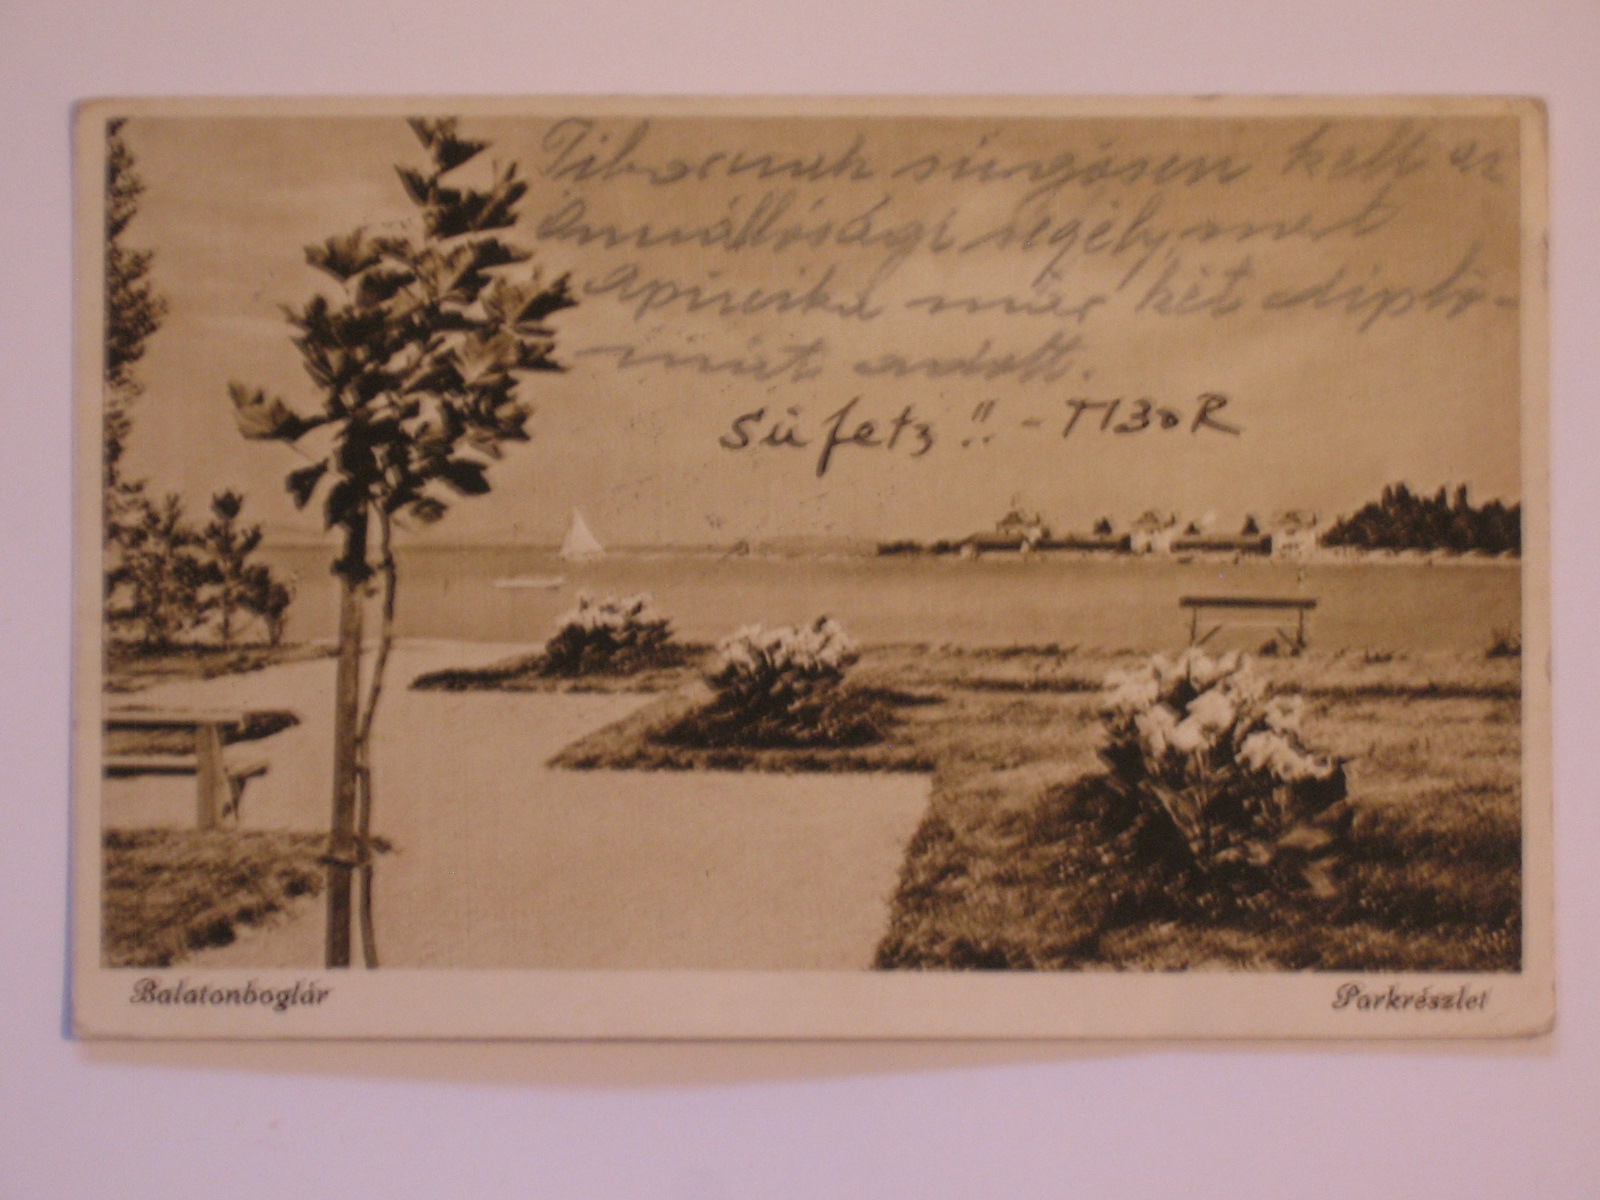 Tibornak sürgősen kell az
önnállósági segély, mert
Apuska már két dipló-
mát adott.
süfetz !! - TIBOR
Balatonboglár
Parkrészlet